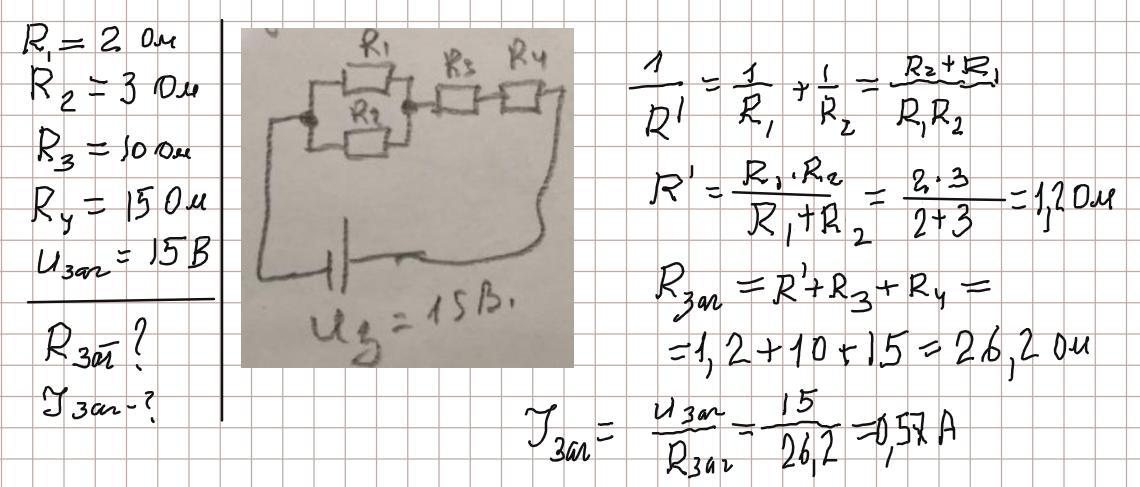 R₁ = 2 Ом
R₂ = 3 Ом
R₃ = 10 Ом
R₄ = 15 Ом
Uзаг = 15 В
Rзаг - ?
Iзаг - ?
R₁
R₂
R₃
R₄
Uз = 15 В.
1/R' = 1/R₁ + 1/R₂ = (R₂ + R₁)/(R₁R₂)
R' = (R₁·R₂)/(R₁ + R₂) = (2·3)/(2+3) = 1,2 Ом
Rзаг = R' + R₃ + R₄ =
= 1,2 + 10 + 15 = 26,2 Ом
Iзаг = Uзаг/Rзаг = 15/26,2 = 0,57 А